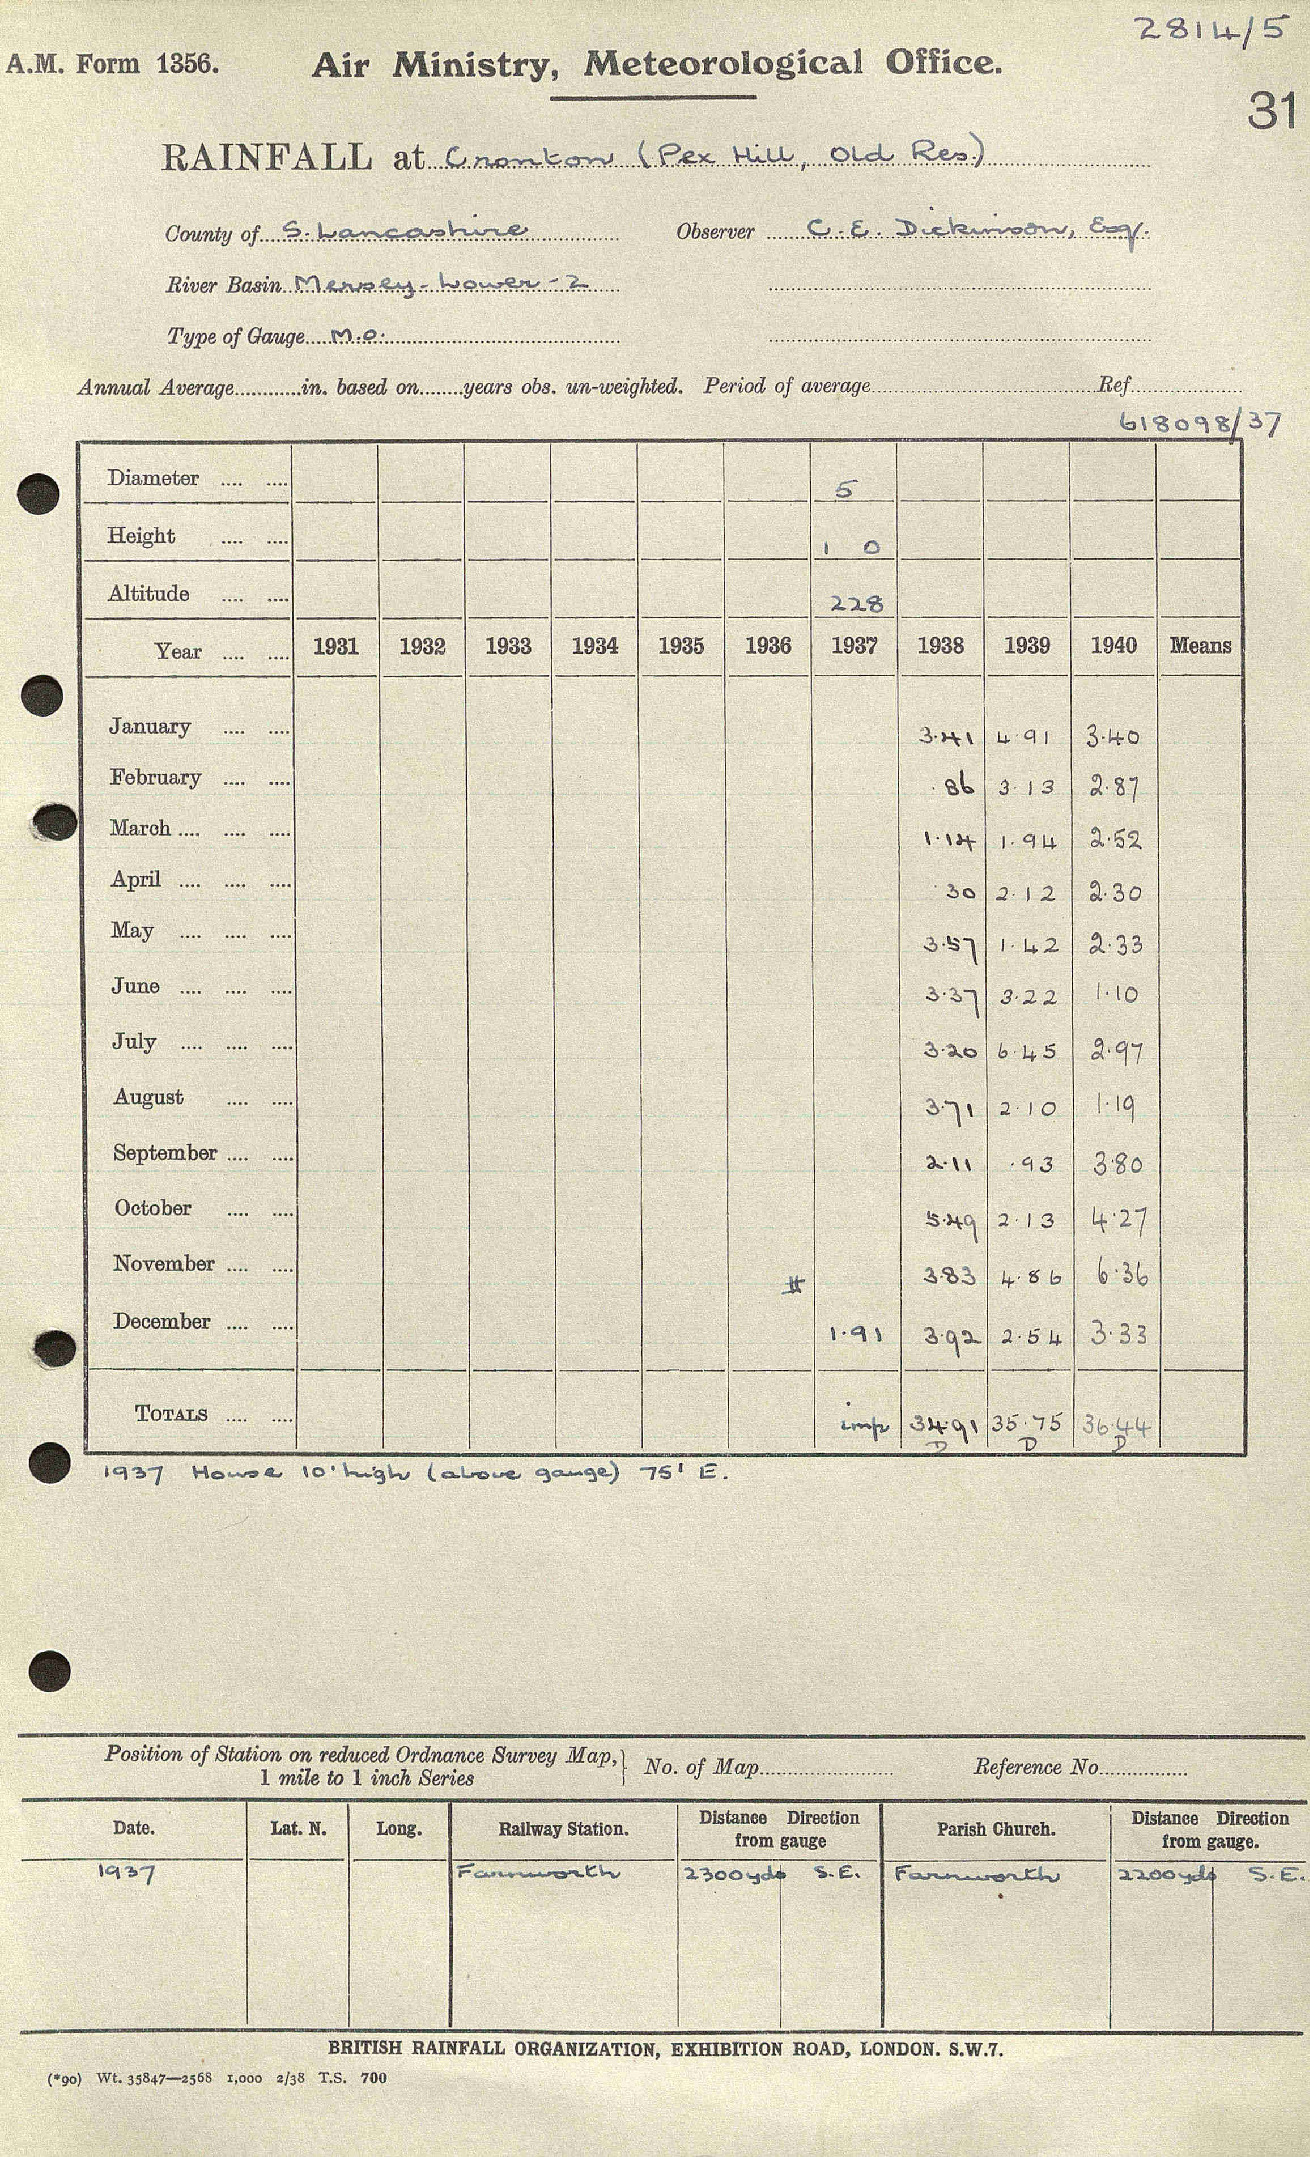 2814/5
A.M. Form 1356. Air Ministry, Meteorological Office.
31
RAINFALL at Cronton (Pex Hill, Old Res.)
County of S. Lancashire Observer C. E. Dickinson, Esq.
River Basin Mersey - Lower - 2
Type of Gauge M.O.
Annual Average............in. based on........years obs. un-weighted. Period of average.................... Ref....................
618098/37
Diameter .... .... 5
Height .... .... 1 0
Altitude .... .... 228
Year .... .... 1931 1932 1933 1934 1935 1936 1937 1938 1939 1940 Means
January .... .... 3.41 4.91 3.40
February .... .... .86 3.13 2.87
March .... .... .... 1.14 1.94 2.52
April .... .... .... .30 2.12 2.30
May .... .... .... 3.57 1.42 2.33
June .... .... .... 3.37 3.22 1.10
July .... .... .... 3.20 6.45 2.97
August .... .... 3.71 2.10 1.19
September .... .... 2.11 .93 3.80
October .... .... 5.49 2.13 4.27
November .... .... 3.83 4.86 6.36
December .... .... 1.91 3.92 2.54 3.33
TOTALS .... .... imp 34.91 35.75 36.44
D D D
1937 House 10' high (above gauge) 75' E.
Position of Station on reduced Ordnance Survey Map, } No. of Map.................... Reference No................
1 mile to 1 inch Series
Date. Lat. N. Long. Railway Station. Distance Direction from gauge Parish Church. Distance Direction from gauge.
1937 Farnworth 2300yds S.E. Farnworth 2200yds S.E.
BRITISH RAINFALL ORGANIZATION, EXHIBITION ROAD, LONDON. S.W.7.
(*90) Wt. 35847—2568 1,000 2/38 T.S. 700